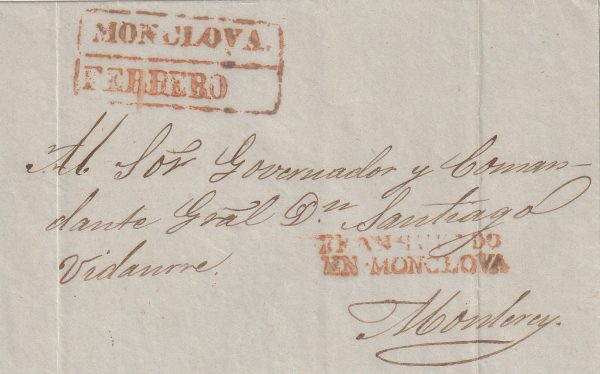 MONCLOVA.
FEBRERO
Al Sôr Governador y Coman-
dante Grãl Dn Santiago
Vidaurre.
FRANQUEADO
EN MONCLOVA
Monterey.